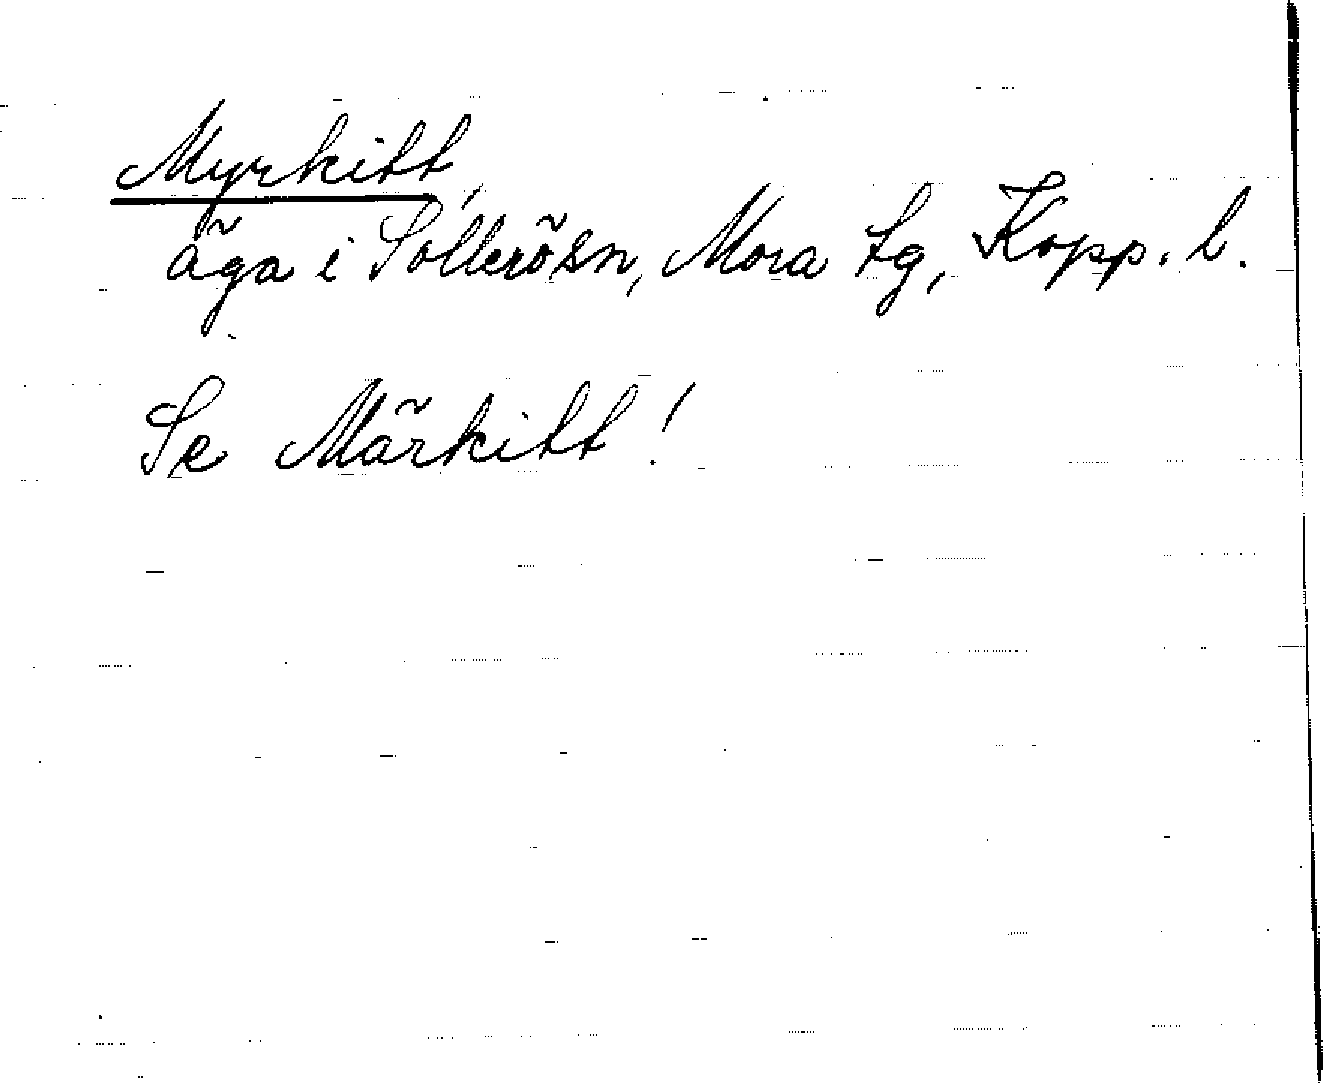 Myrkitt,
äga i Sollerösn, Mora tg, Kopp. l.
Se Märkitt!